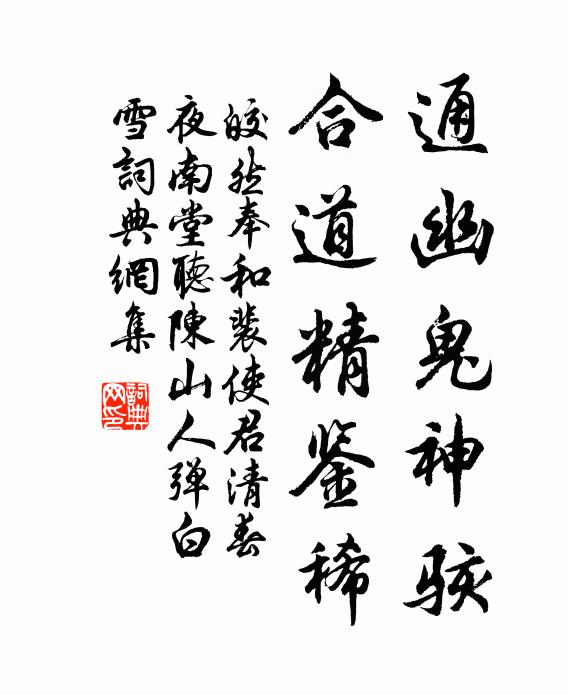 通幽鬼神駭
合道精鉴稀
皎然奉和裴使君清春
夜南堂聽陳山人弹白
雪詞典網集
詞典
网印